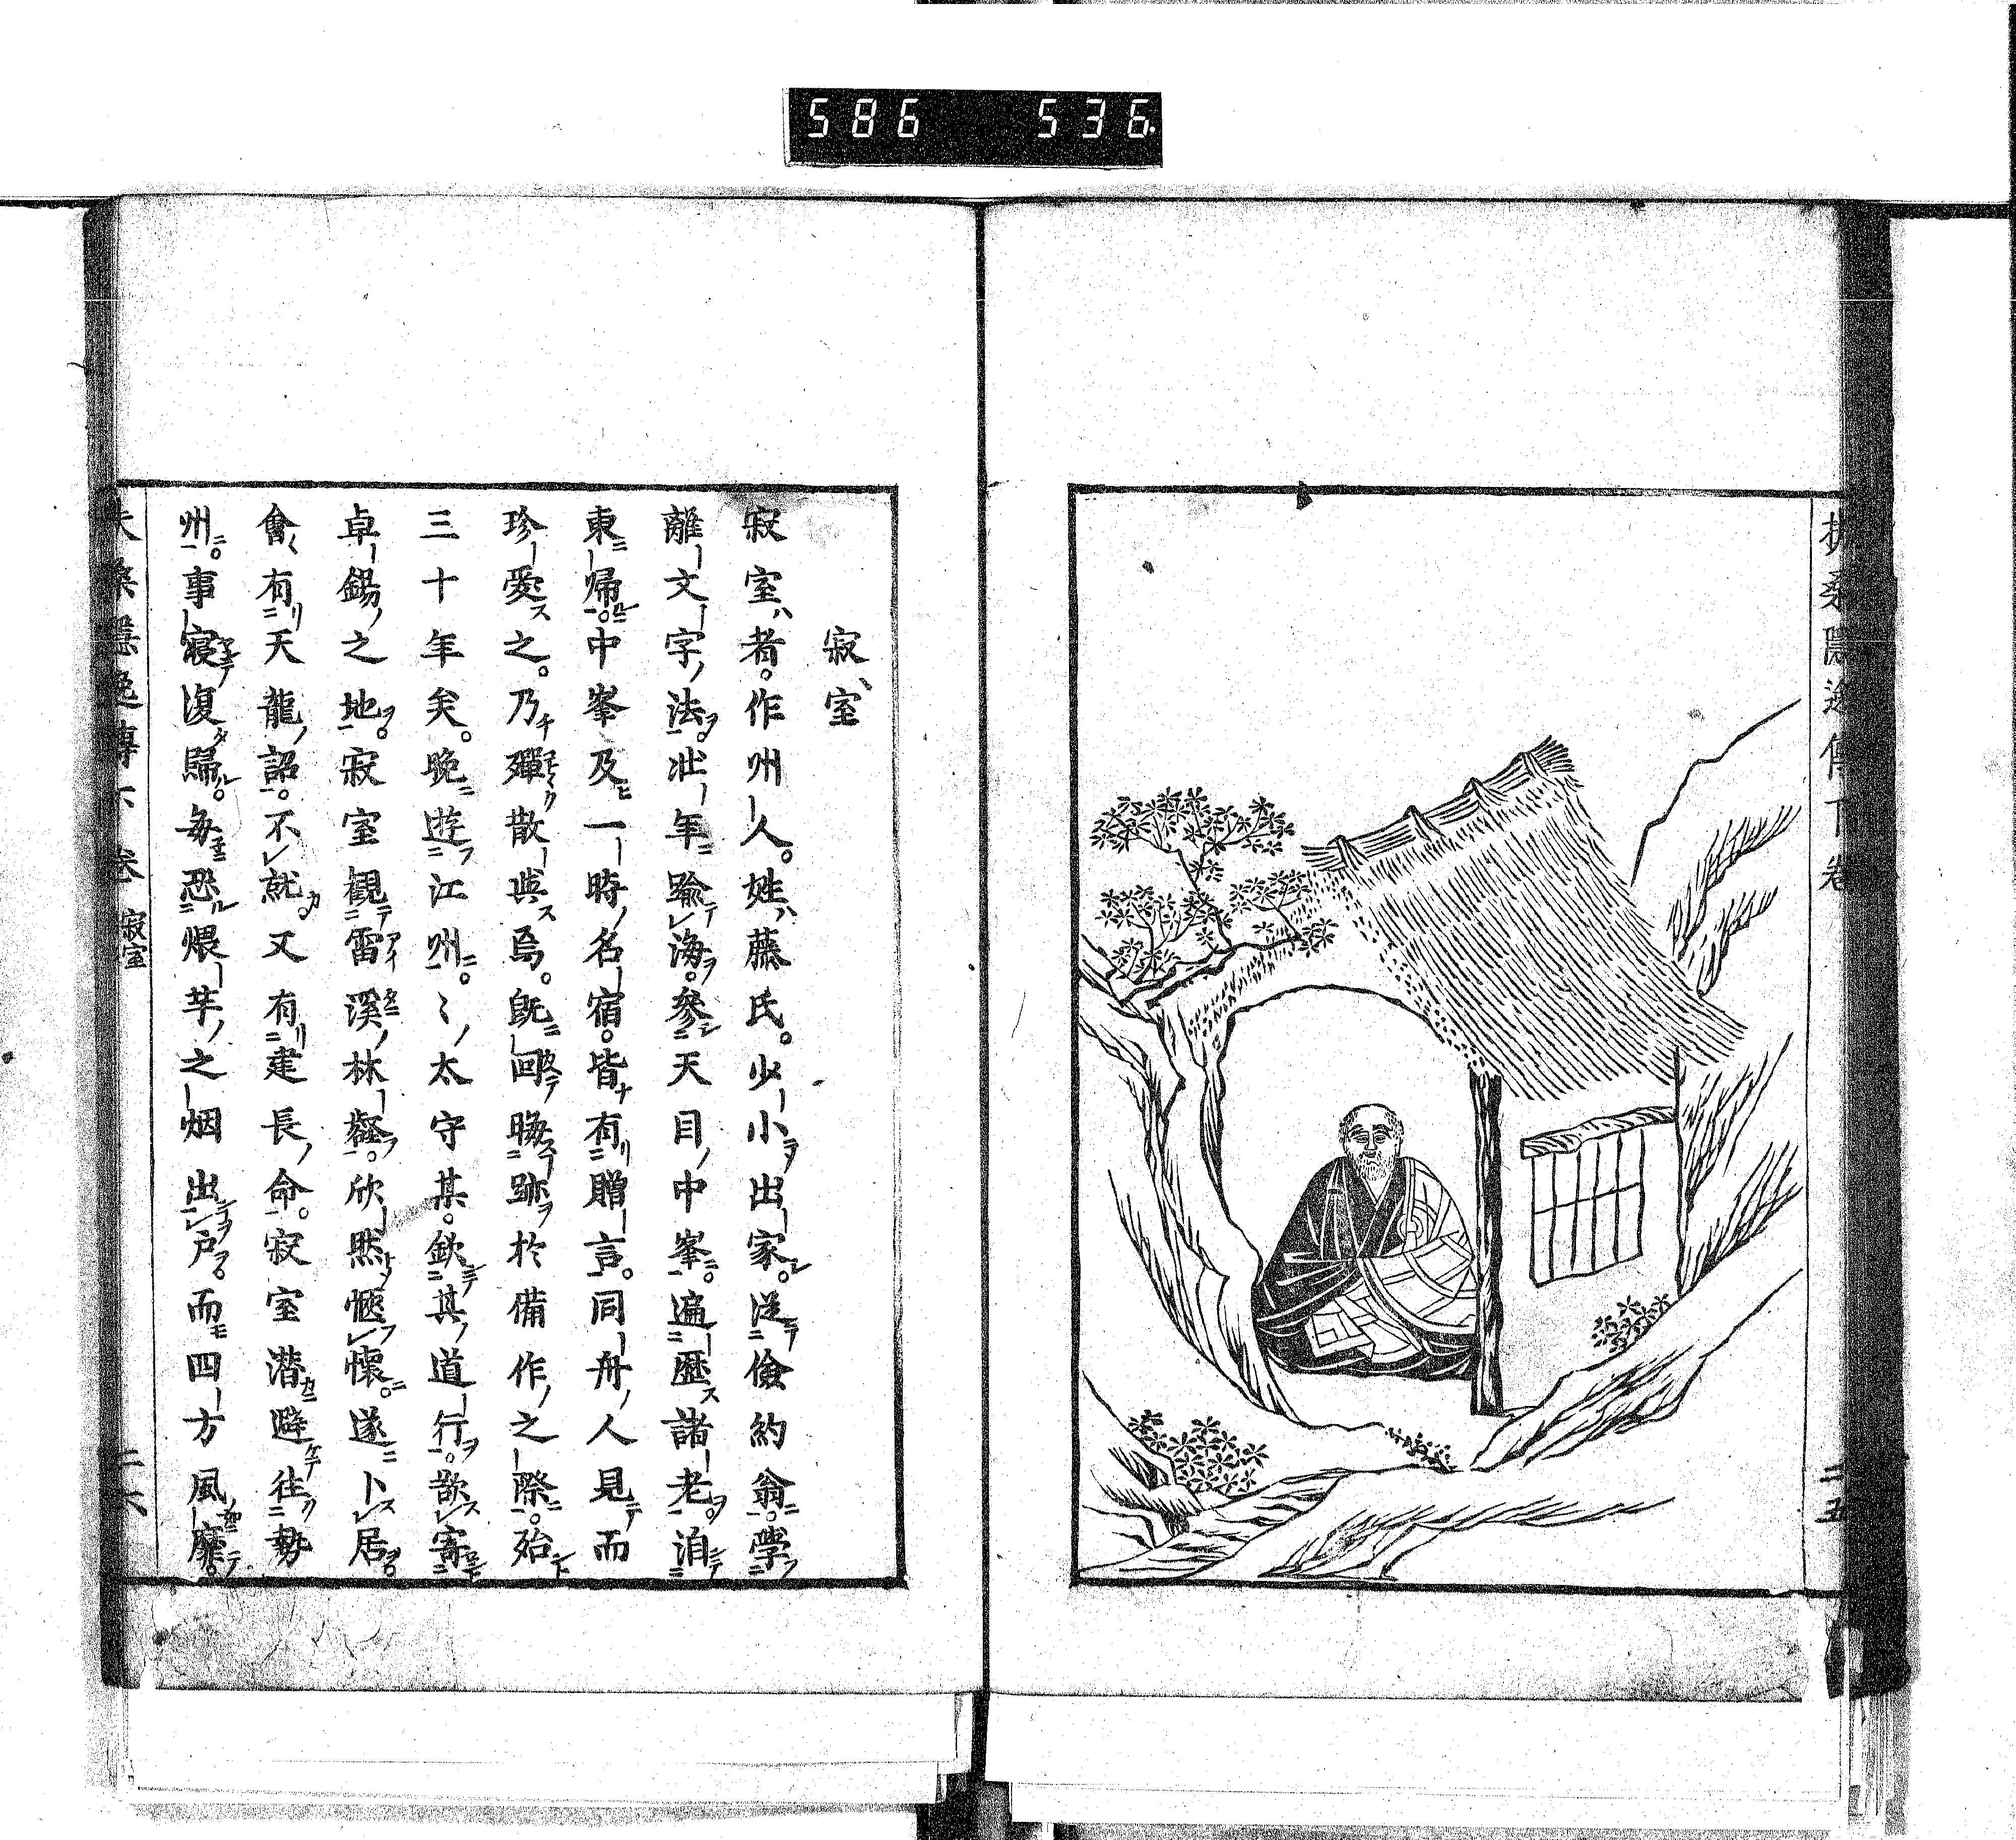 586 536
扶桑隠逸傳下卷
二五
寂室
寂室者。作州人。姓藤氏。少小出家。從儉約翁。學
離文字法。壯年踰海。參天目中峯。遍歷諸老。洎
東帰。中峯及一時名宿。皆有贈言。同舟人見而
珍愛之。乃殫散與焉。既回晦跡於備作之際。殆
三十年矣。晚遊江州。〻太守某。欽其道行。歆寄
卓錫之地。寂室觀雷溪林壑。欣然愜懷。遂卜居。
會有天龍詔。不就。又有建長命。寂室潛避往勢
州。事寢復歸。每恐煨芋之烟出戶。而四方風靡。
扶桑隱逸傳下卷 寂室
二六